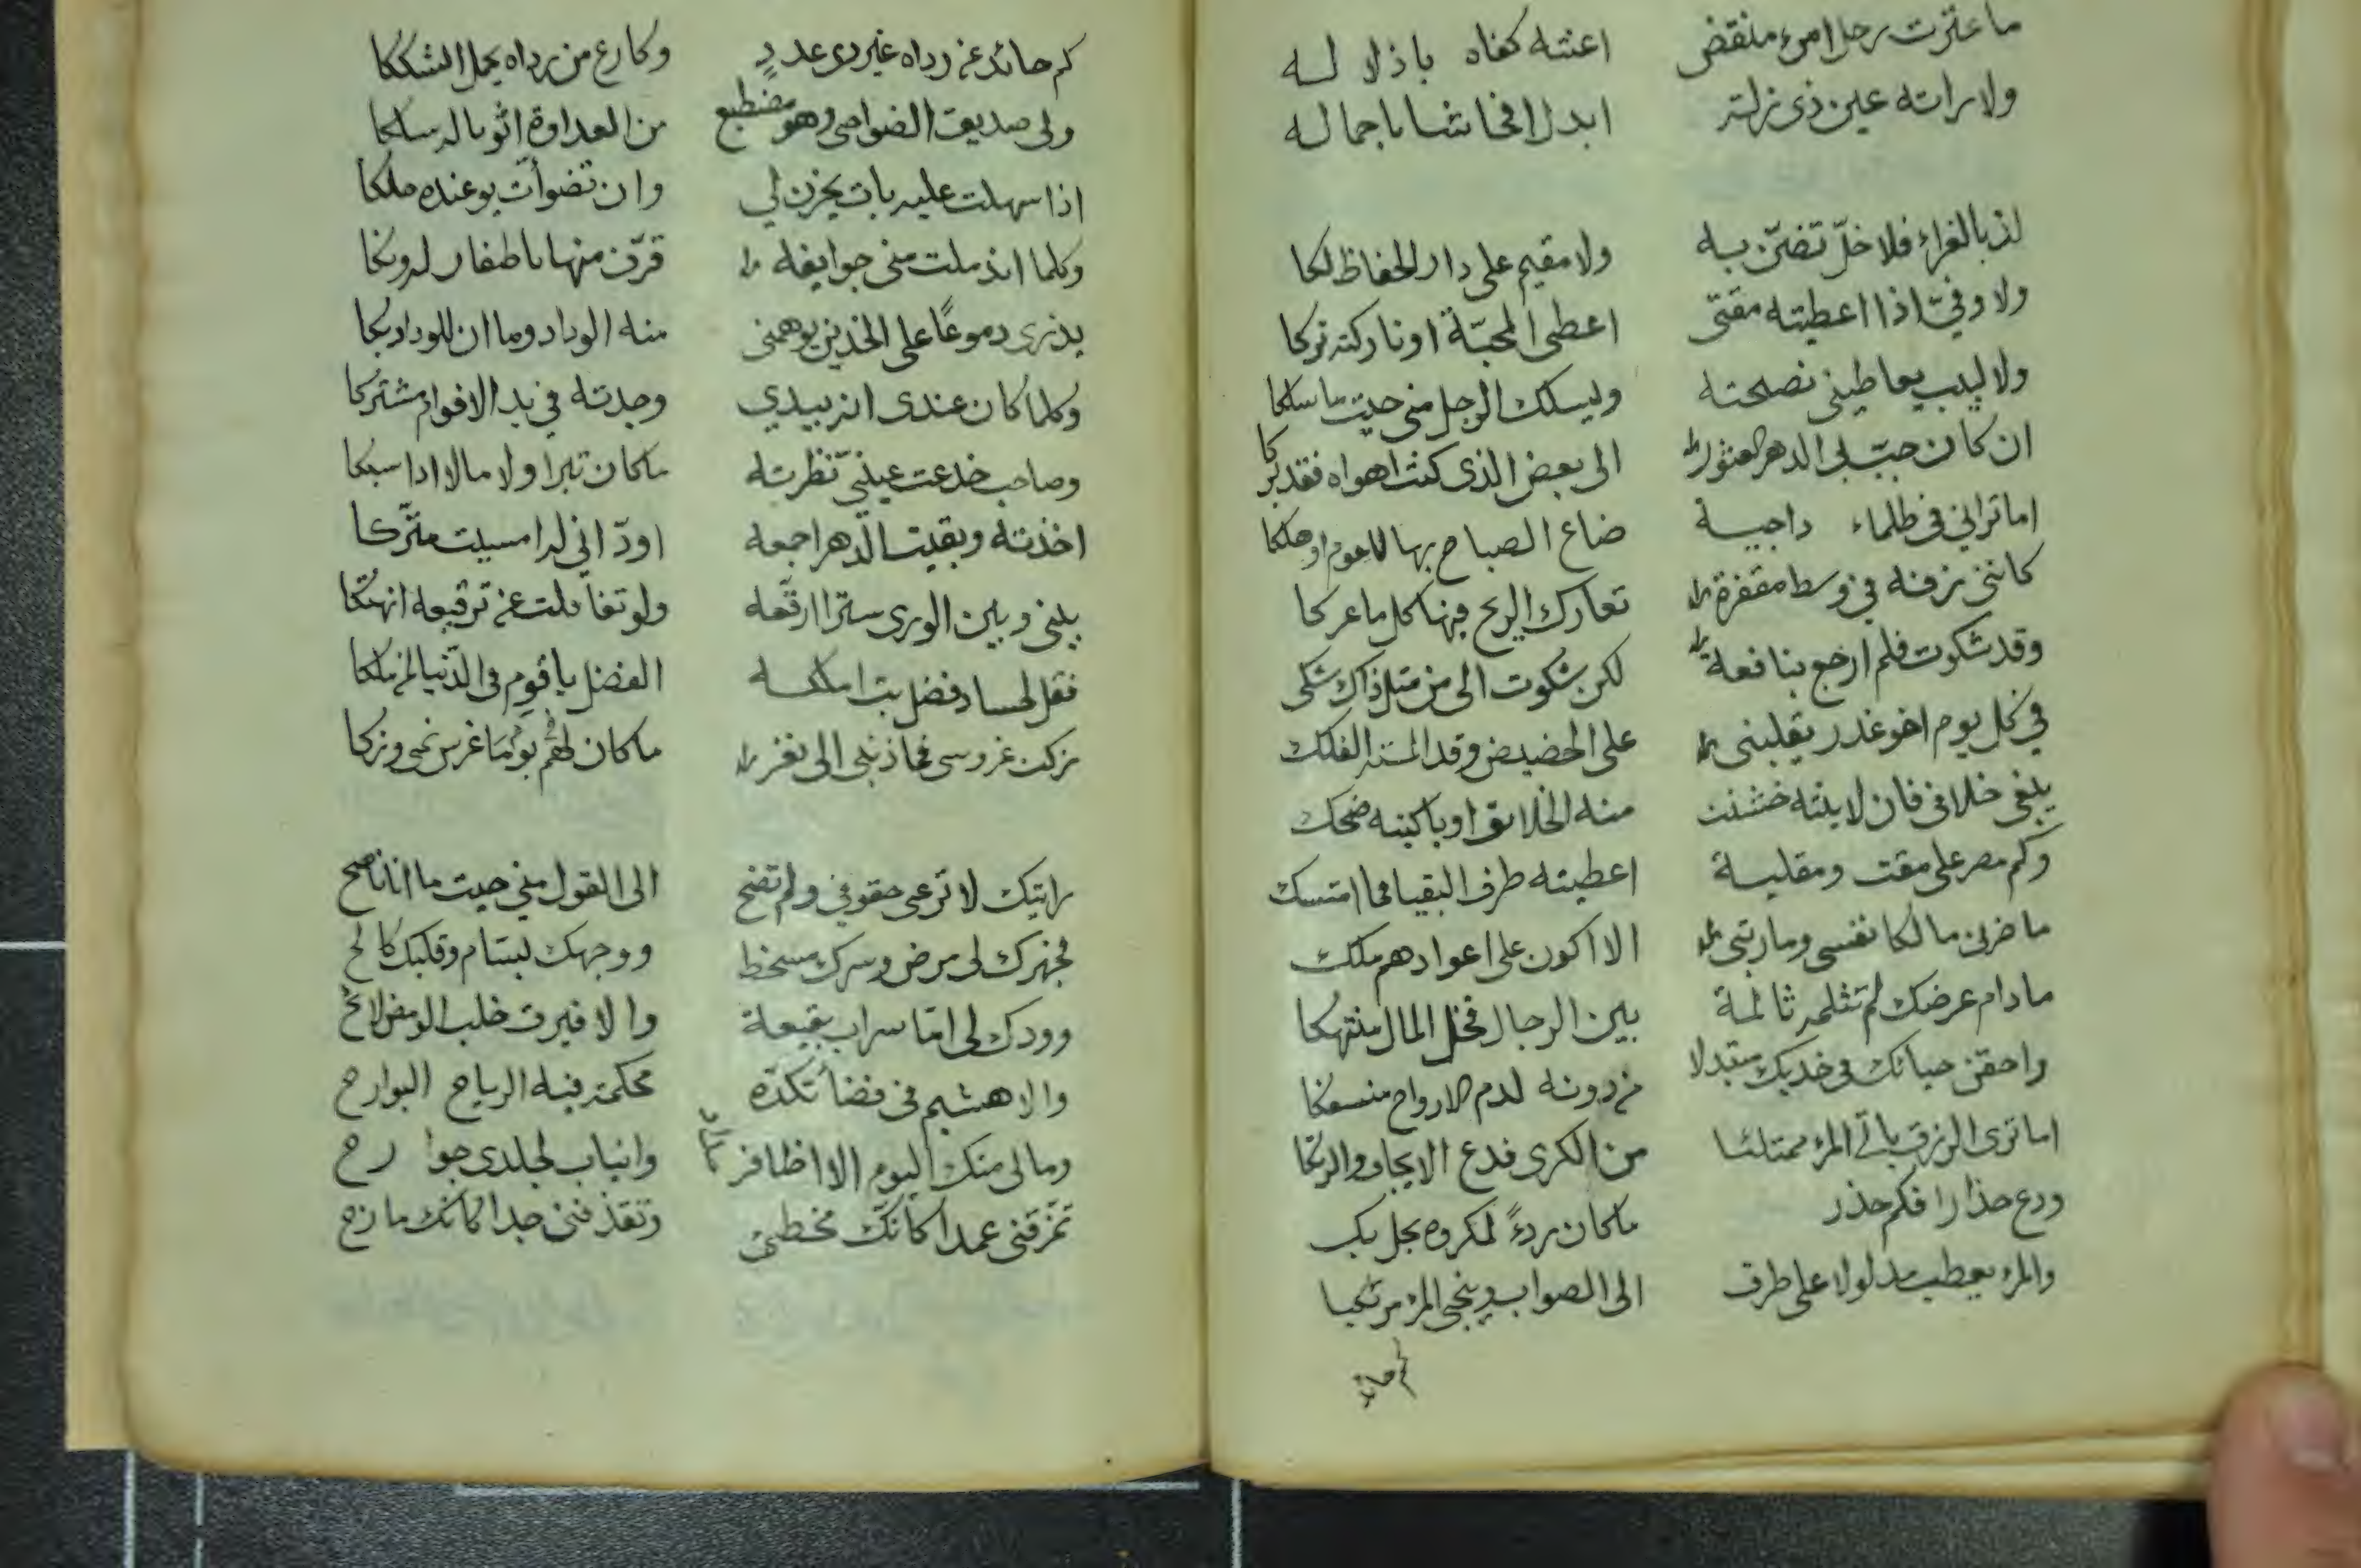 ما عثرت رجل امرء منقض اعنته كفاه باذلا له
ولا راته عين ذى زلة ابدل افحاشا باجماله
لذ بالغراء فلا خلّ تضنّ به ولا مقيم على دار الحفاظ لكا
ولا وفيّ اذا اعطيته مقتى اعطى المحبّة او تاركته تركا
ولا لبيب يعاطينى نصحته وليسلك الرجل منى حيث ما سلكا
ان كان حبّب لى الدهر العثور الى بعض الذى كنت اهواه فقد بركا
اما ترانى فى ظلماء داجية ضاع الصباح بها للقوم او هلكا
كاننى زفنه فى وسط مقفرة تعارك الريح فيها كل ما عركا
وقد شكوت فلم ارجع بنافعة لكن شكوت الى من مثل ذاك شكى
فى كل يوم اخو غدر يقلبنى على الحضيض وقد المسته الفلك
يبغى خلافى فان لاينته خشنت منه الخلائق او باكيته ضحك
وكم مصر على مقت ومقلية اعطيته طرف البقيا فما امتسك
ما ضرنى مالكا نفسى ومارتبى الا اكون على اعوادهم ملك
ما دام عرضك لم تثلمه ثالمة بين الرجال فخل المال منتهكا
واحقن حيائك فى خديك مبتذلا من دونه لدم الارواح منسفكا
اما ترى الرزق ياتى المرء ممتلئا من الكرى فدع الايجاف والرتكا
ودع حذارا فكم حذر ما كان ردءً لمكروه بجل بك
والمرء يعطب مدلولا على طرف الى الصواب وينجى المرء مرتبكا
كم حائد
كم حائد عن رداه غير ذى عدد وكارع من رداه يحمل الشككا
ولى صديق الضواحى وهو مضطبع من العداوة اثوبا له سلكا
اذا سهلت عليه بات يحزن لي وان تضوأت يوعنده حلكا
وكلما اندملت منى جوايفه قرّف منها باظفار له ونكا
يذرى دموعًا على الخدين يوهمنى منه الوداد وما ان للوداد بكا
وكلما كان عندى انه بيدي وجدته في يد الاقوام مشتركا
وصاحب خدعت عينيّ نظرته ما كان تبرا ولا مالا اذا سبكا
اخذته وبقيت الدهر اجمعه اودّ انى له امسيت متّركا
بينى وبين الورى سترا ارقّعه ولو تغافلت عن ترقيعه انهتكا
فقل لحساد فضل بت املكه الفضل يا قوم فى الدّنيا لمن ملكا
زكت غروسى فما ذنبى الى نفر ما كان لهم يوما غرس نمى وزكا
رايتك لا ترعى حقوقي ولم تضح الى القول منى حيث ما انا ناصح
فجهرك لى مرض وسرك مسخط ووجهك بسّام وقلبك كالح
وودك لى امّا سراب بقيعة والا فبرق خلب الومض لائح
والا هشيم فى فضاً تكدّه محكمة فيه الرياح البوارح
ومالى منك اليوم الا اظافر وانياب لجلدى جوارح
تمزقنى عمدا كانّك مخطئ وتقذفنى جدا كانك مازح